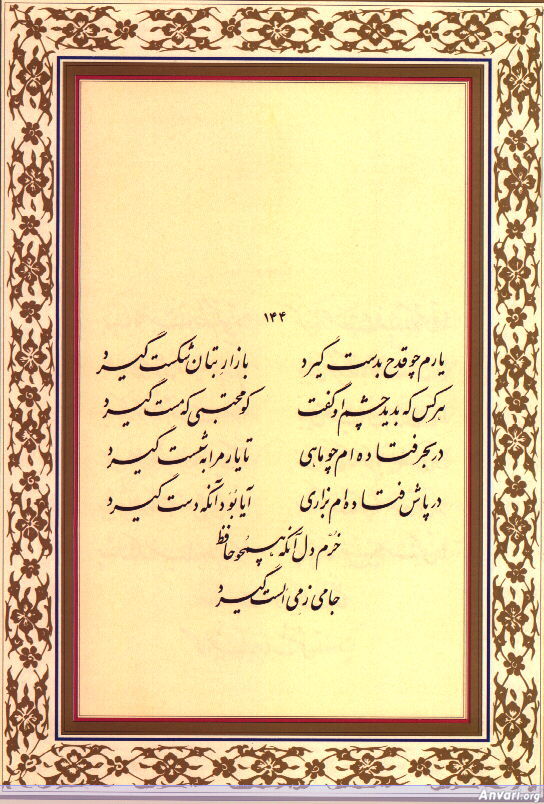 ۱۴۴
یارم چو قدح بدست گیرد بازار بتان شکست گیرد
هر کس که بدید چشم او گفت کو محتسبی که مست گیرد
در بحر فتاده ام چو ماهی تا یار مرا به شست گیرد
در پاش فتاده‌ام بزاری آیا بُوَد آنکه دست گیرد
خُرّم دل آنکه همچو حافظ
جامی ز می الست گیرد
Anvari.org